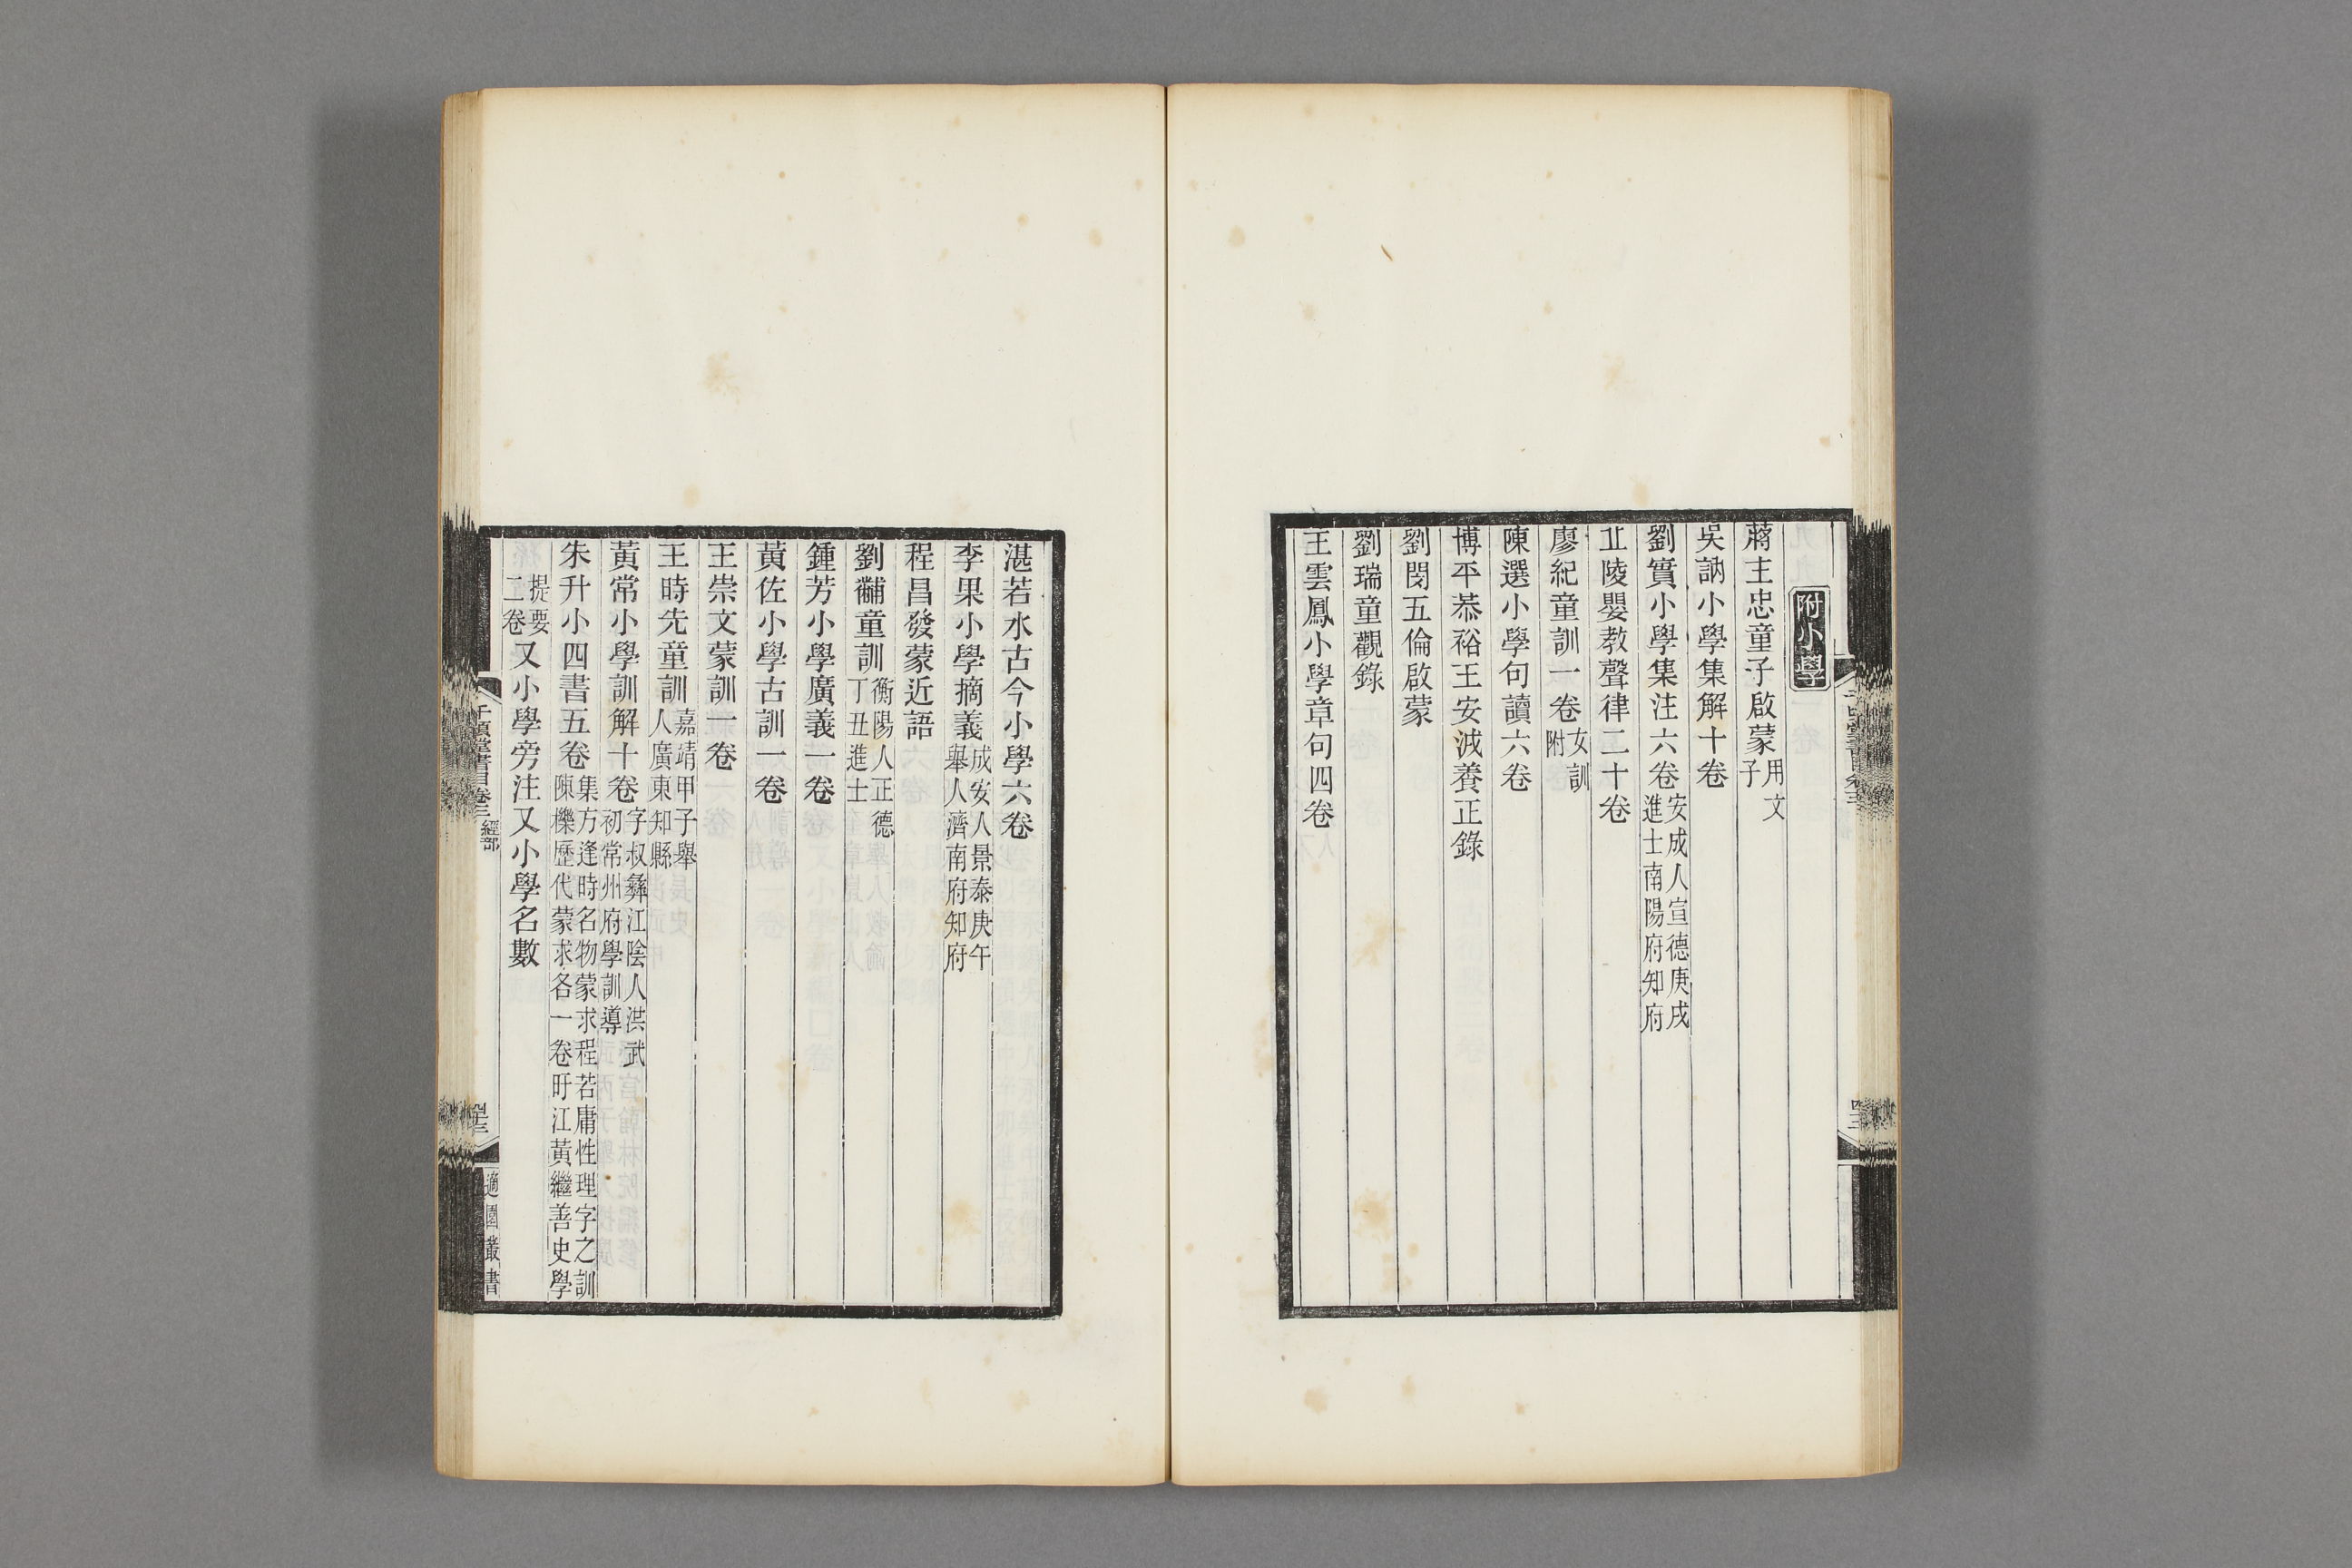 附小學
蔣主忠童子啟蒙用文子
吳訥小學集解十卷
劉實小學集注六卷安成人宣德庚戌進士南陽府知府
丘陵嬰教聲律二十卷
廖紀童訓一卷女訓附
陳選小學句讀六卷
博平恭裕王安淢養正錄
劉閔五倫啟蒙
劉瑞童觀錄
王雲鳳小學章句四卷
湛若水古今小學六卷
李果小學摘義成安人景泰庚午舉人濟南府知府
程昌發蒙近語
劉黼童訓衡陽人正德丁丑進士
鍾芳小學廣義一卷
黃佐小學古訓一卷
王崇文蒙訓一卷
王時先童訓嘉靖甲子舉人廣東知縣
黃常小學訓解十卷字叔彝江陰人洪武初常州府學訓導
朱升小四書五卷集方逢時名物蒙求程若庸性理字之訓陳櫟歷代蒙求各一卷盱江黃繼善史學
提要二卷又小學旁注又小學名數
千頃堂書目卷三經部
適園叢書